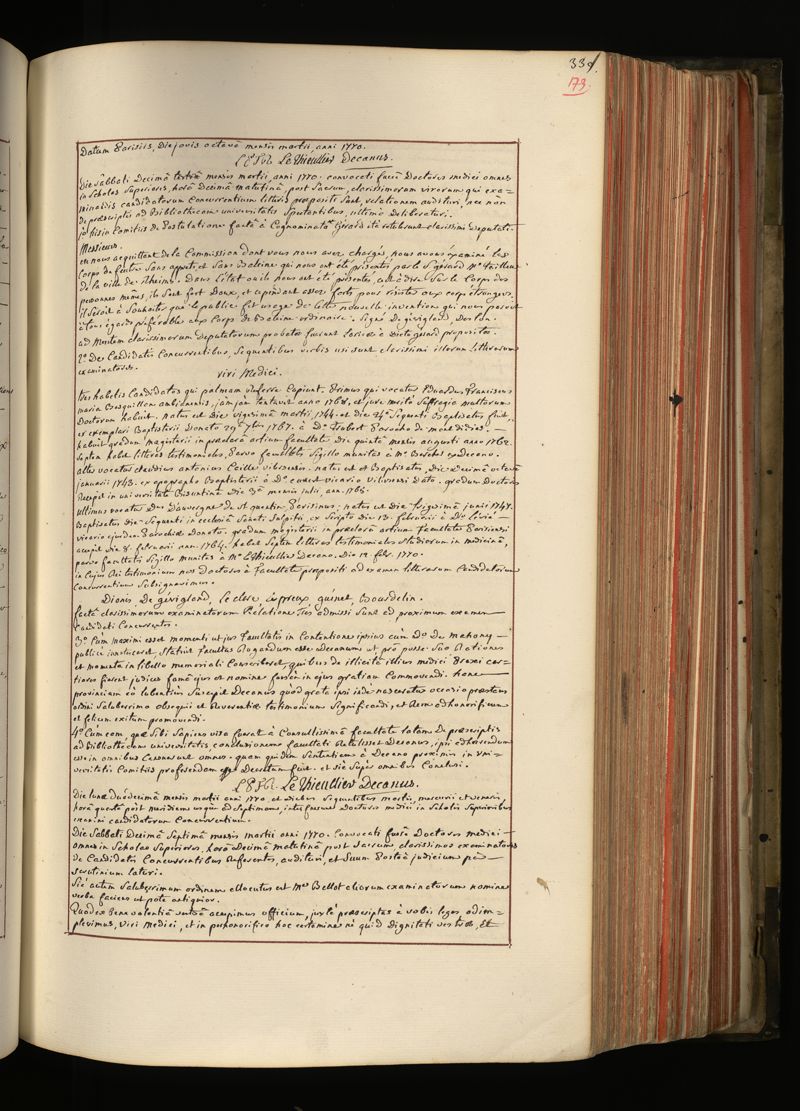 339.
173
Datum Parisiis, Die jovis octavâ mensis martii, anni 1770.
Le Thieullier Decanus.
Die Sabbati Decimâ tertiâ mensis martii, anni 1770. convocati fuere Doctores medici omnes
in Scholas Superiores, horâ Decimâ matutinâ post Sacrum, clarissimorum virorum qui exa=
minandis candidatorum Concurrentium litteris praepositi sunt, relationem audituri, nec non
de praescriptis ad Bibliothecam universitatis Spectantibus, ultimo Deliberaturi.
in Comitiis de Postulatione factâ à Cognominato Gérard ità retulerunt clarissimi Deputati.
Messieurs.
en nous acquittant de la Commission dont vous nous avez chargés, nous avons examiné les
Corps de feutre Sans apprêt, et Sans Baleine qui nous ont été présentés par le S. Gérard Me Tailleur
de la ville de Rheims. Dans l'état où ils nous ont été présentés, c'est à dire Sur le Corps des
personnes mêmes, ils Sont fort Doux, et cependant assez forts pour résister aux corps étrangers,
il Seroit à Souhaiter que le public fit usage de cette nouvelle invention qui nous paroit
à tous égards préférable aux Corps de Baleine ordinaire. Signé De gévigland,
ad Mentem clarissimorum Deputatorum probatae fuerunt loricae à Dicto gérard propositae.
2.° De Candidatis Concurrentibus, Sequentibus verbis usi sunt clarissimi illorum litterarum
examinatores.
viri Medici.
tres habetis Candidatos qui palmam referre Cupiunt. Primus qui vocatur Eduardus Franciscus
maria Bosquillon ambianensis, jam jàm tentavit anno 1768, et jure meritò Suffragia multorum
Doctorum habuit. natus est Die vigesimâ martii, 1744. et die 24â Sequenti Baptisatus fuit,
ex exemplari Baptisterii Donato 29â 7bris 1767. à D.
habuit gradum magisterii in praeclarâ artium facultate Die quintâ mensis augusti anno 1762.
Septem habet litteras testimoniales, parvo facultatis Sigillo munitas à Mo Exdecano.
alter vocatus claudius antonius Caille natus est et Baptisatus, Die Decimâ octavâ
januarii 1743. ex apographo Baptisterii à Do vicario dato. gradum Doctoris
Recepit in universitate Bisuntinâ Die 3â mensis julii, ann. 1765.
ultimus vocatur Dauvergne de St quentin Parisinus; natus est Die trigesimâ junii 1747.
Baptisatus die Sequenti in ecclesiâ Sancti Sulpitii, ex Scripto Die 13. februarii à Do
vicario ejusdem Parochiae Donato. gradum magisterii in praeclarâ artium Facultate Parisiensi
accepit die 8. februarii ann. 1764. habet Septem litteras testimoniales studiorum in medicinâ,
parvo facultatis Sigillo munitas à Mo Le Thieullier Decano. Die 12. febr. 1770.
in cujus Rei testimonium nos Doctores à Facultate praepositi ad examen litterarum Candidatorum
Concurrentium Subsignavimus.
Dionis, De gévigland, Le clerc, Cuspreux, guénet, Bourdelin.
factâ clarissimorum examinatorum Relatione Tres admissi Sunt ad proximum examen
Candidati Concurrentes.
3.° Cùm maximi esset momenti ut jus Facultatis in Contentione ipsius cùm Do De mahony
publicè innotesceret, Statuit Facultas Rogandum esse Decanum ut pro posse Suo Rationes
et momenta in libello memoriali Conscriberet, quibus de illicitâ illius medici Praxi cer=
tiores fierent judices famâ ejus et nomine forsan in ejus gratiam Commovendi. hanc
provinciam eò lubentius Suscepit Decanus quòd grata ipsi inde nasceretur occasio praestans
ordini Saluberrimo obsequii et Reverentiae testimonium Significandi, et Rem ad honorificum
et felicem exitum promovendi.
4.° Cum eam, quae Sibi Sapiens visa fuerat à Consultissimâ facultate latam De praescriptis
ad Bibliothecam universitatis, conclusionem facultati Retulisset Decanus, ipsi adhaerendum
esse in omnibus Censuerunt omnes. quam quidem Sententiam à Decano proximis in uni=
versitatis Comitiis proferendam esse Decretum fuit. et Sic Super omnibus Conclusi.
Le Thieullier Decanus.
Die lunae duodecimâ mensis martii anni 1770. et diebus Sequentibus martis, mercurii et veneris,
horâ quartâ post meridiem usque ad Septimam, interfuerunt Doctores medici in Scholis Superioribus
examini candidatorum Concurrentium.
Die Sabbati Decimâ Septimâ mensis martii anni 1770. Convocati fuere Doctores medici
omnes in Scholas Superiores, horâ Decimâ matutinâ post Sacrum, clarissimos examinatores
de Candidatis Concurrentibus Referentes, audituri, et Suum Posteà judicium per
Scrutinium laturi.
Sic autem Saluberrimum ordinem allocutus est Mer Bellot aliorum examinatorum nomine
verba faciens ut pote antiquior.
Quod ex bene valentiâ vestrâ accepimus officium, juxtà praescriptas à vobis leges, adim=
plevimus, viri medici, et in perhonorifico hoc certamine ne quid Dignitati vestrae, Et